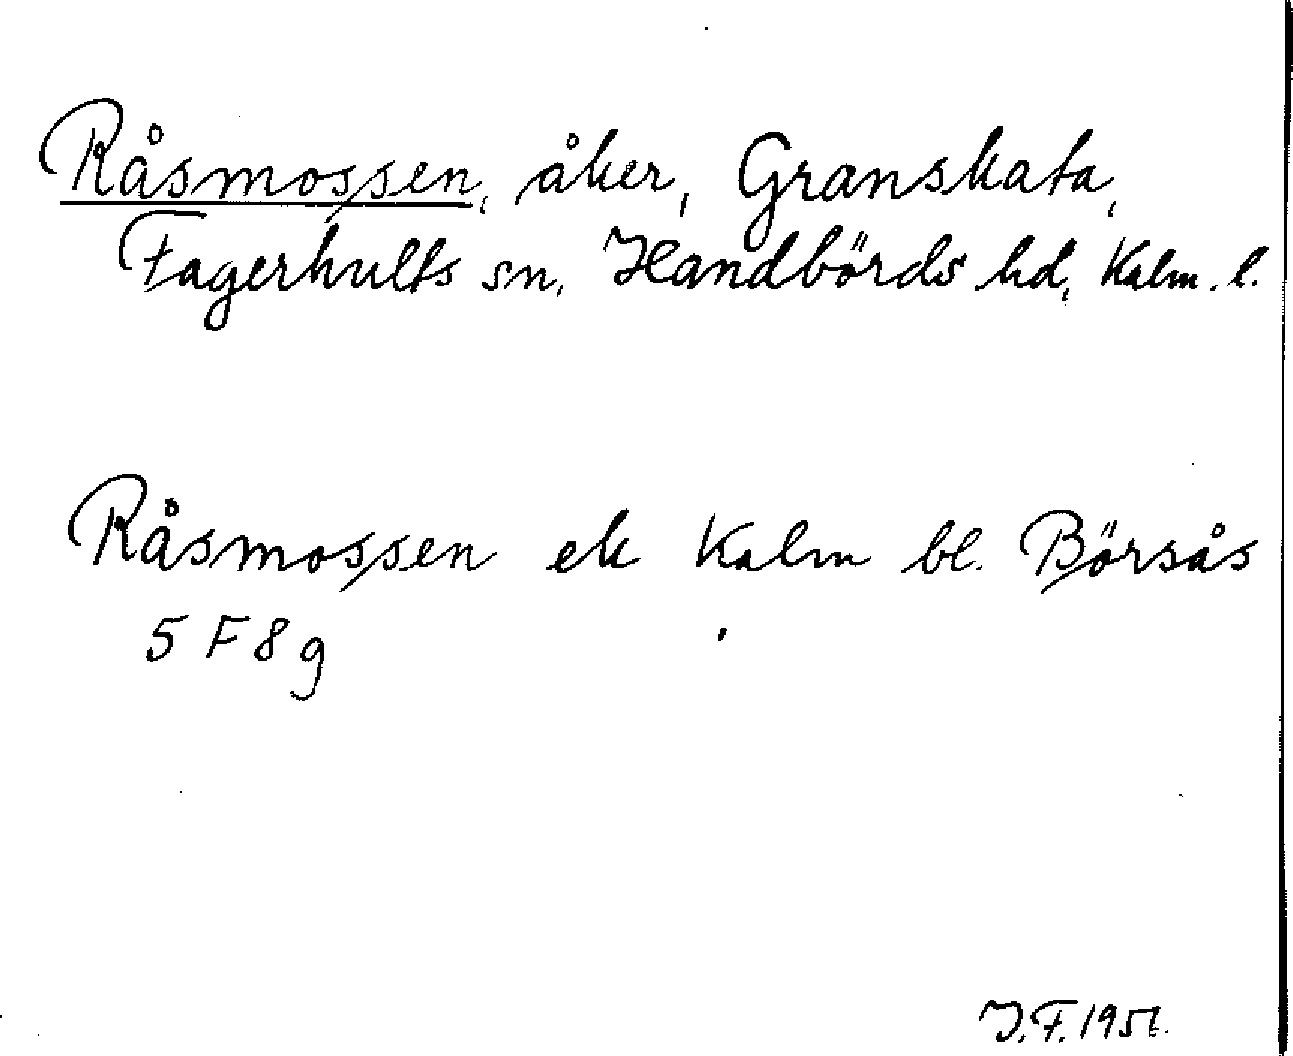 Råsmossen, åker, Granskata,
Fagerhults sn, Handbörds hd, Kalm. l.
Råsmossen ek Kalm bl. Börsås
5 F 8 g
J.F.